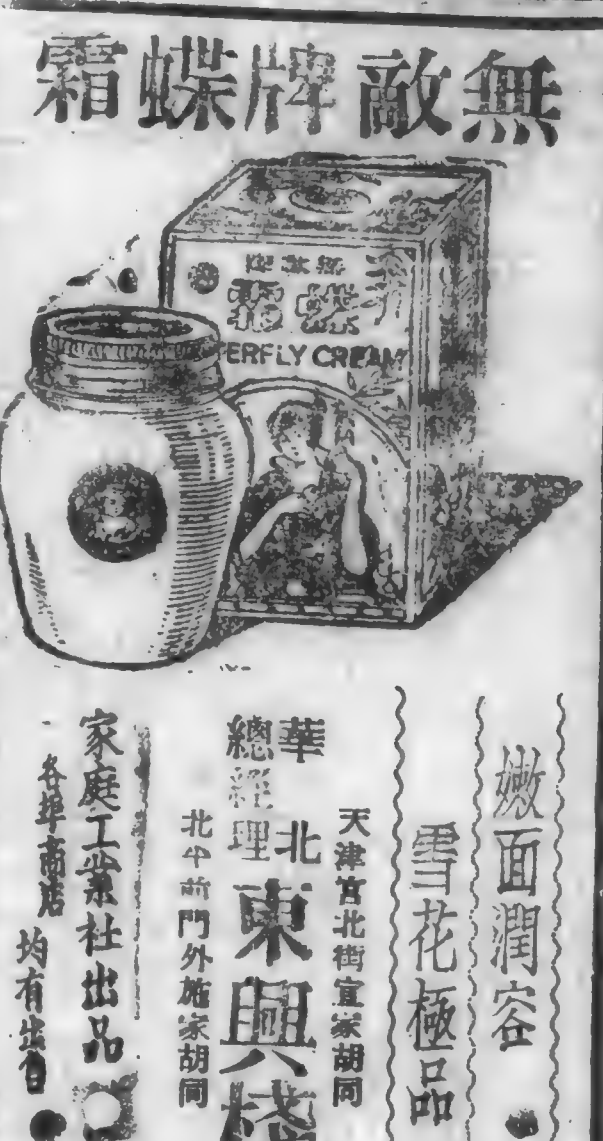 無敵牌蝶霜
無敵牌
蝶霜
ERFLY CREAM
嫩面潤容
雪花極品
天津宮北街宜家胡同
華北
總經理
東興棧
北平前門外施家胡同
家庭工業社出品
各埠商店
均有出售